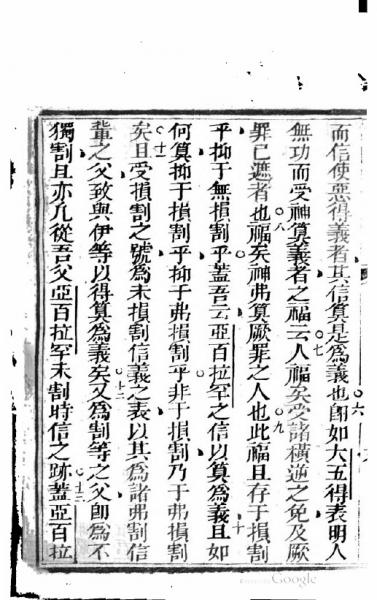 而信使惡得義者其信算是為義也○六即如大五得表明人
無功而受神算義者之福云○七人福矣受諸橫逆之免及厥
罪已遮者也○八福矣神弗算厥罪之人也○九此福且存于損割
乎抑于無損割乎蓋吾云亞百拉罕之信以算為義○十且如
何算抑于損割乎抑于弗損割乎非于損割乃于弗損割
矣○十一且受損割之號為未損割信義之表以其為諸弗割信
輩之父致與伊等以得算為義矣○十二又為割等之父即為不
獨割且亦凡從吾父亞百拉罕未割時信之跡○十三蓋亞百拉
Google